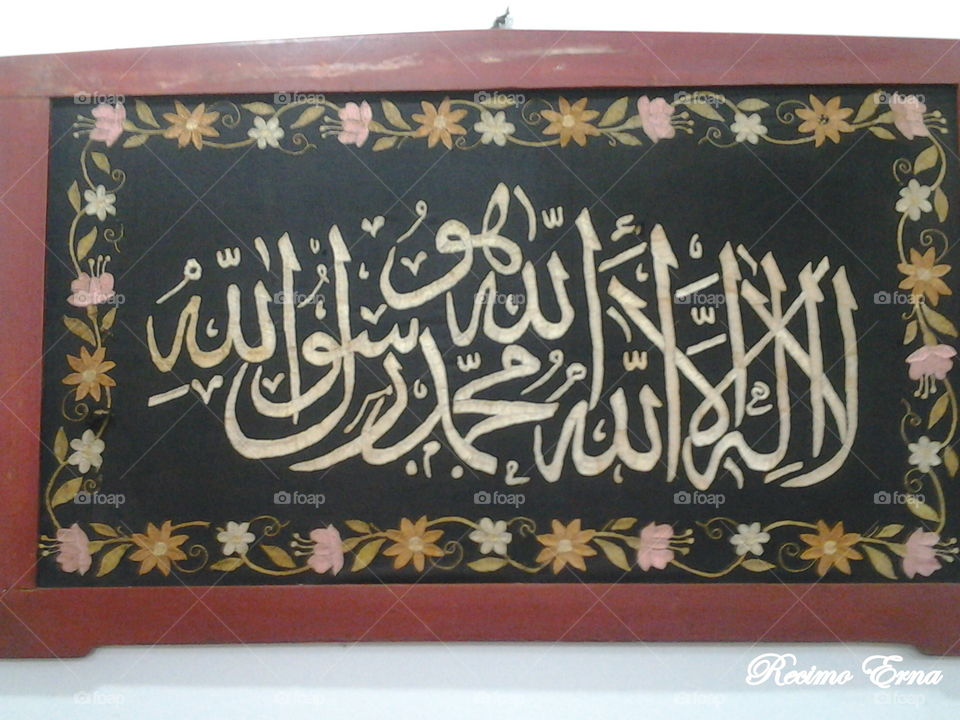 لا إله إلا الله الله هو محمد رسول الله
Recimo Erna